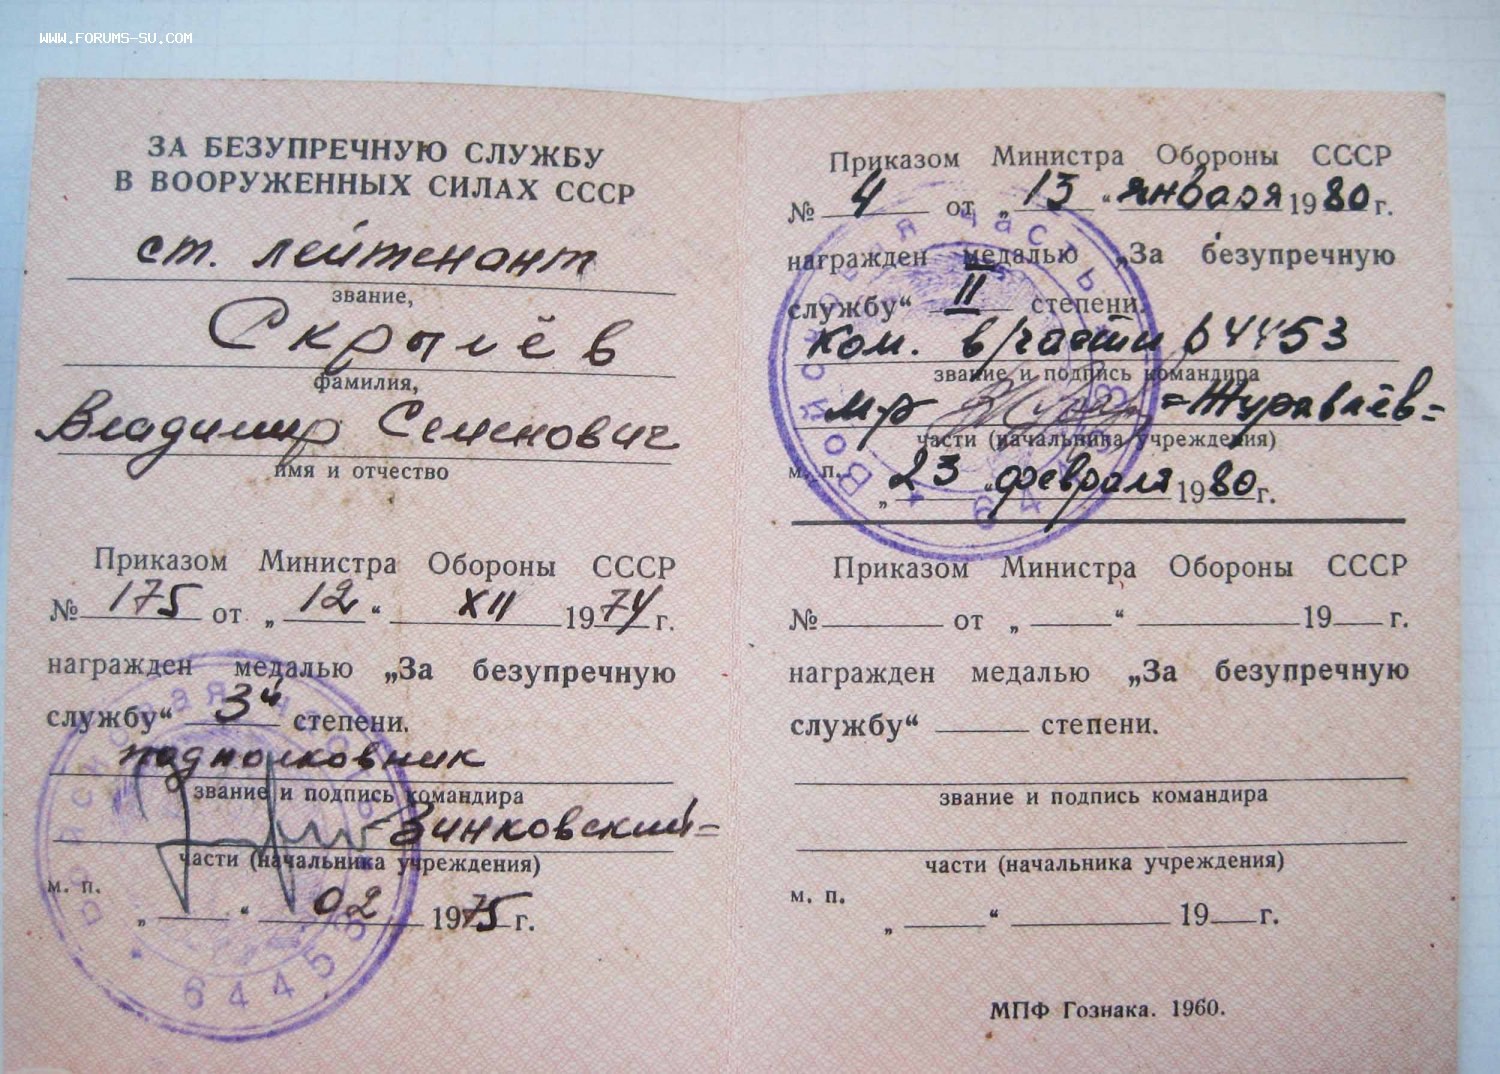 WWW.FORUMS-SU.COM
ЗА БЕЗУПРЕЧНУЮ СЛУЖБУ
В ВООРУЖЕННЫХ СИЛАХ СССР
ст. лейтенант
звание,
Скрылёв
фамилия,
Владимир Семенович
имя и отчество
Приказом Министра Обороны СССР
№ 175 от „ 12 “ XII 1974 г.
награжден медалью „За безупречную
службу“ 3й степени.
подполковник
звание и подпись командира
Зинковский
части (начальника учреждения)
м. п.
„ “ 02 1975 г.
Войсковая часть
64453
Приказом Министра Обороны СССР
№ 4 от „ 13 “ января 1980 г.
награжден медалью „За безупречную
службу“ II степени.
Ком. в/части 64453
звание и подпись командира
м-р =Журавлёв=
части (начальника учреждения)
м. п.
„ 23 “ февраля 1980 г.
Войсковая часть
64453
Приказом Министра Обороны СССР
№ от „ “ 19 г.
награжден медалью „За безупречную
службу“ степени.
звание и подпись командира
части (начальника учреждения)
м. п.
„ “ 19 г.
МПФ Гознака. 1960.